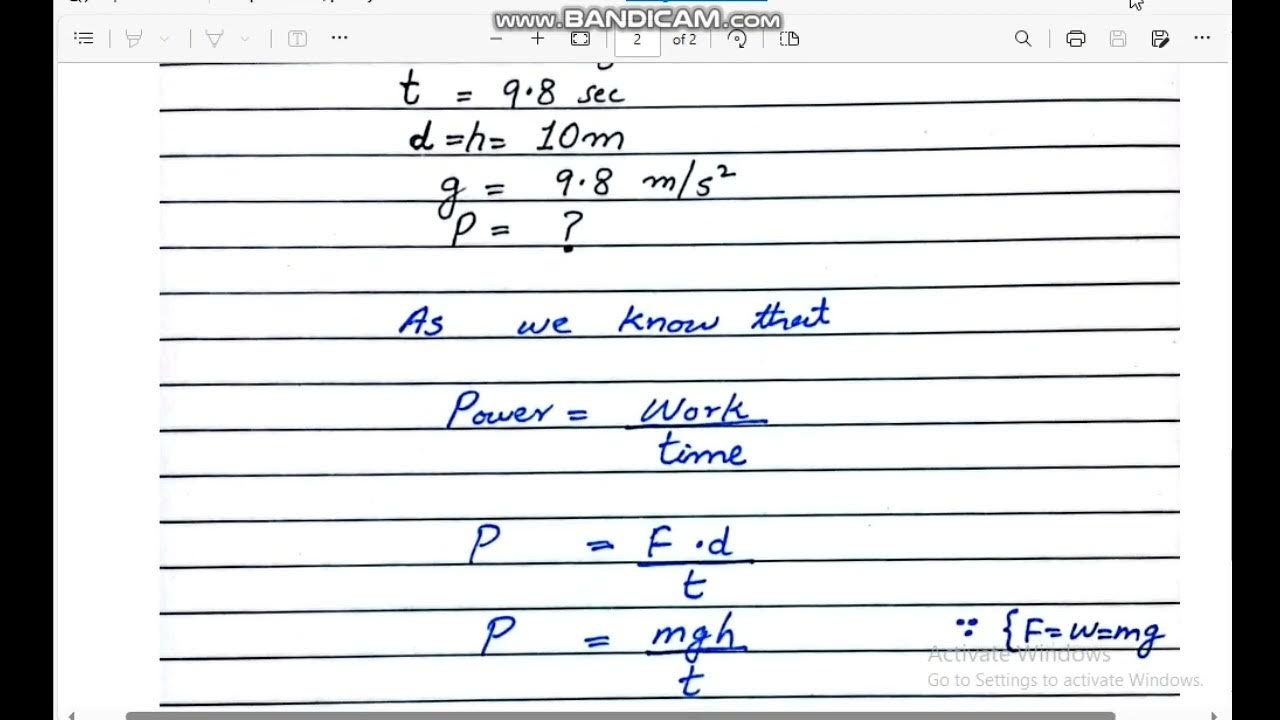 www.BANDICAM.com
2 of 2
t = 9.8 sec
d = h = 10m
g = 9.8 m/s²
P = ?
As we know that
Power = Work
time
P = F . d
t
P = mgh ∵ {F=W=mg
t
Activate Windows
Go to Settings to activate Windows.